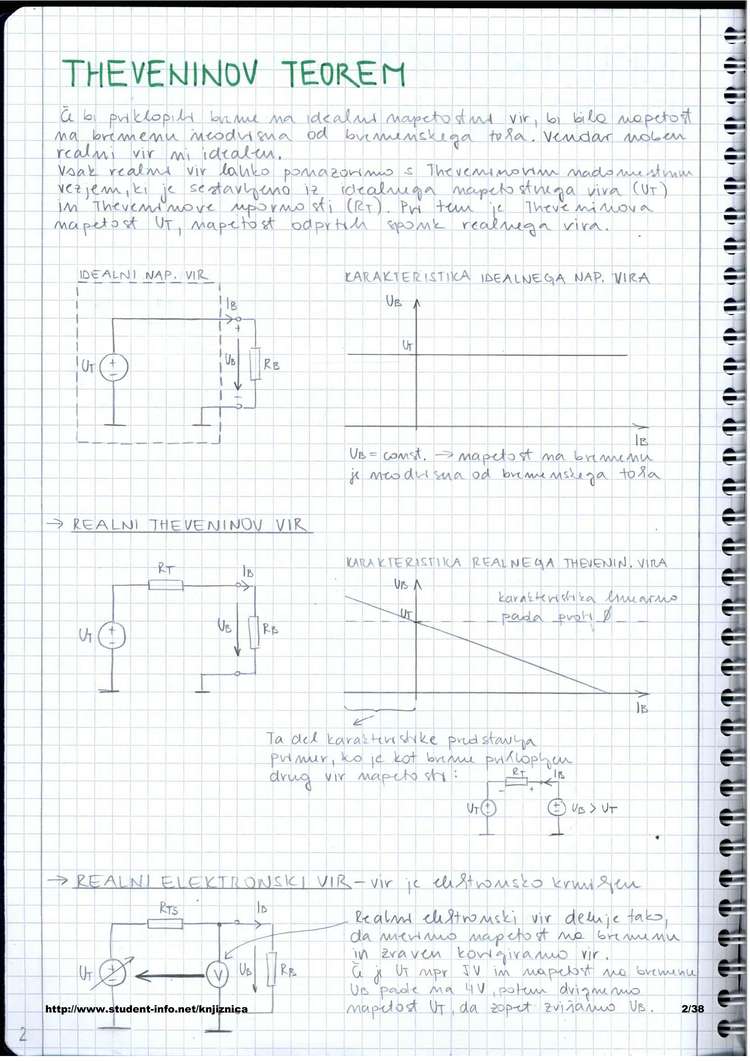 THEVENINOV TEOREM
Če bi priklopili breme na idealni napetostni vir, bi bila napetost
na bremenu neodvisna od bremenskega toka. Vendar noben
realni vir ni idealen.
Vsak realni vir lahko ponazorimo s Theveninovim nadomestnim
vezjem, ki je sestavljeno iz idealnega napetostnega vira (UT)
in Theveninove upornosti (RT). Pri tem je Theveninova
napetost UT, napetost odprtih sponk realnega vira.
IDEALNI NAP. VIR
KARAKTERISTIKA IDEALNEGA NAP. VIRA
IB
UT
+
-
+
UB
-
RB
UB
UT
IB
UB = const. → napetost na bremenu
je neodvisna od bremenskega toka
→ REALNI THEVENINOV VIR
KARAKTERISTIKA REALNEGA THEVENIN. VIRA
RT
IB
UT
+
-
UB
RB
UB
UT
karakteristika linearno
pada proti Ø
IB
Ta del karakteristike predstavlja
primer, ko je kot breme priklopljen
drug vir napetosti:
RT
IB
- +
UT
UB > UT
→ REALNI ELEKTRONSKI VIR - vir je elektronsko krmiljen
RTS
IB
UT
V
UB
RB
Realni elektronski vir deluje tako,
da merimo napetost na bremenu
in zraven korigiramo vir.
Če je UT npr 5V in napetost na bremenu
UB pade na 4V, potem dvignemo
napetost UT, da zopet zvišamo UB.
http://www.student-info.net/knjiznica
2/38
2